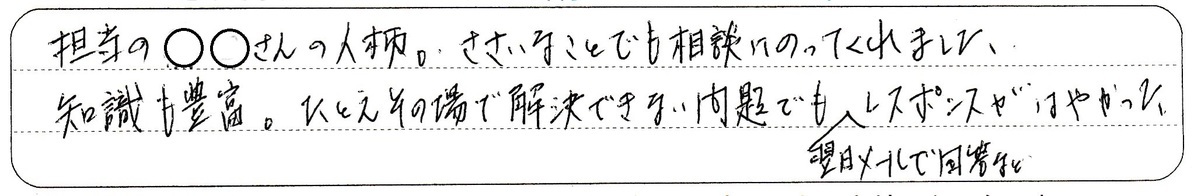 担当の○○さんの人柄。ささいなことでも相談にのってくれました、
知識も豊富。たとえその場で解決できない問題でもレスポンスがはやかった、
翌日メールで回答など